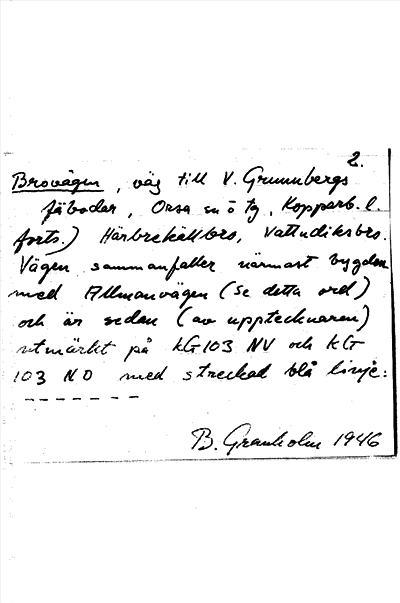 2.
Brovägen, väg till V. Grunnbergs
fäbodar, Orsa sn ö tg, Kopparb. l.
forts.) Härbrekällbro, Vattudiksbro.
Vägen sammanfaller närmast bygden
med Allmanvägen (se detta ord)
och är sedan (av upptecknaren)
utmärkt på KG103 NV och KG
103 NO med streckad blå linje:
- - - - - - -
B. Granholm 1946